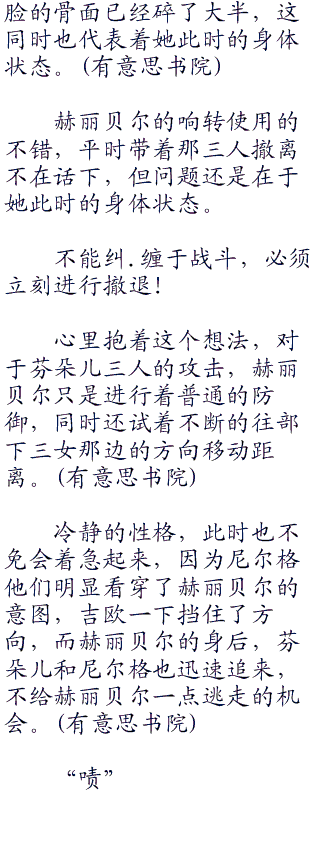 脸的骨面已经碎了大半，这
同时也代表着她此时的身体
状态。(有意思书院)
赫丽贝尔的响转使用的
不错，平时带着那三人撤离
不在话下，但问题还是在于
她此时的身体状态。
不能纠.缠于战斗，必须
立刻进行撤退！
心里抱着这个想法，对
于芬朵儿三人的攻击，赫丽
贝尔只是进行着普通的防
御，同时还试着不断的往部
下三女那边的方向移动距
离。(有意思书院)
冷静的性格，此时也不
免会着急起来，因为尼尔格
他们明显看穿了赫丽贝尔的
意图，吉欧一下挡住了方
向，而赫丽贝尔的身后，芬
朵儿和尼尔格也迅速追来，
不给赫丽贝尔一点逃走的机
会。(有意思书院)
“啧”